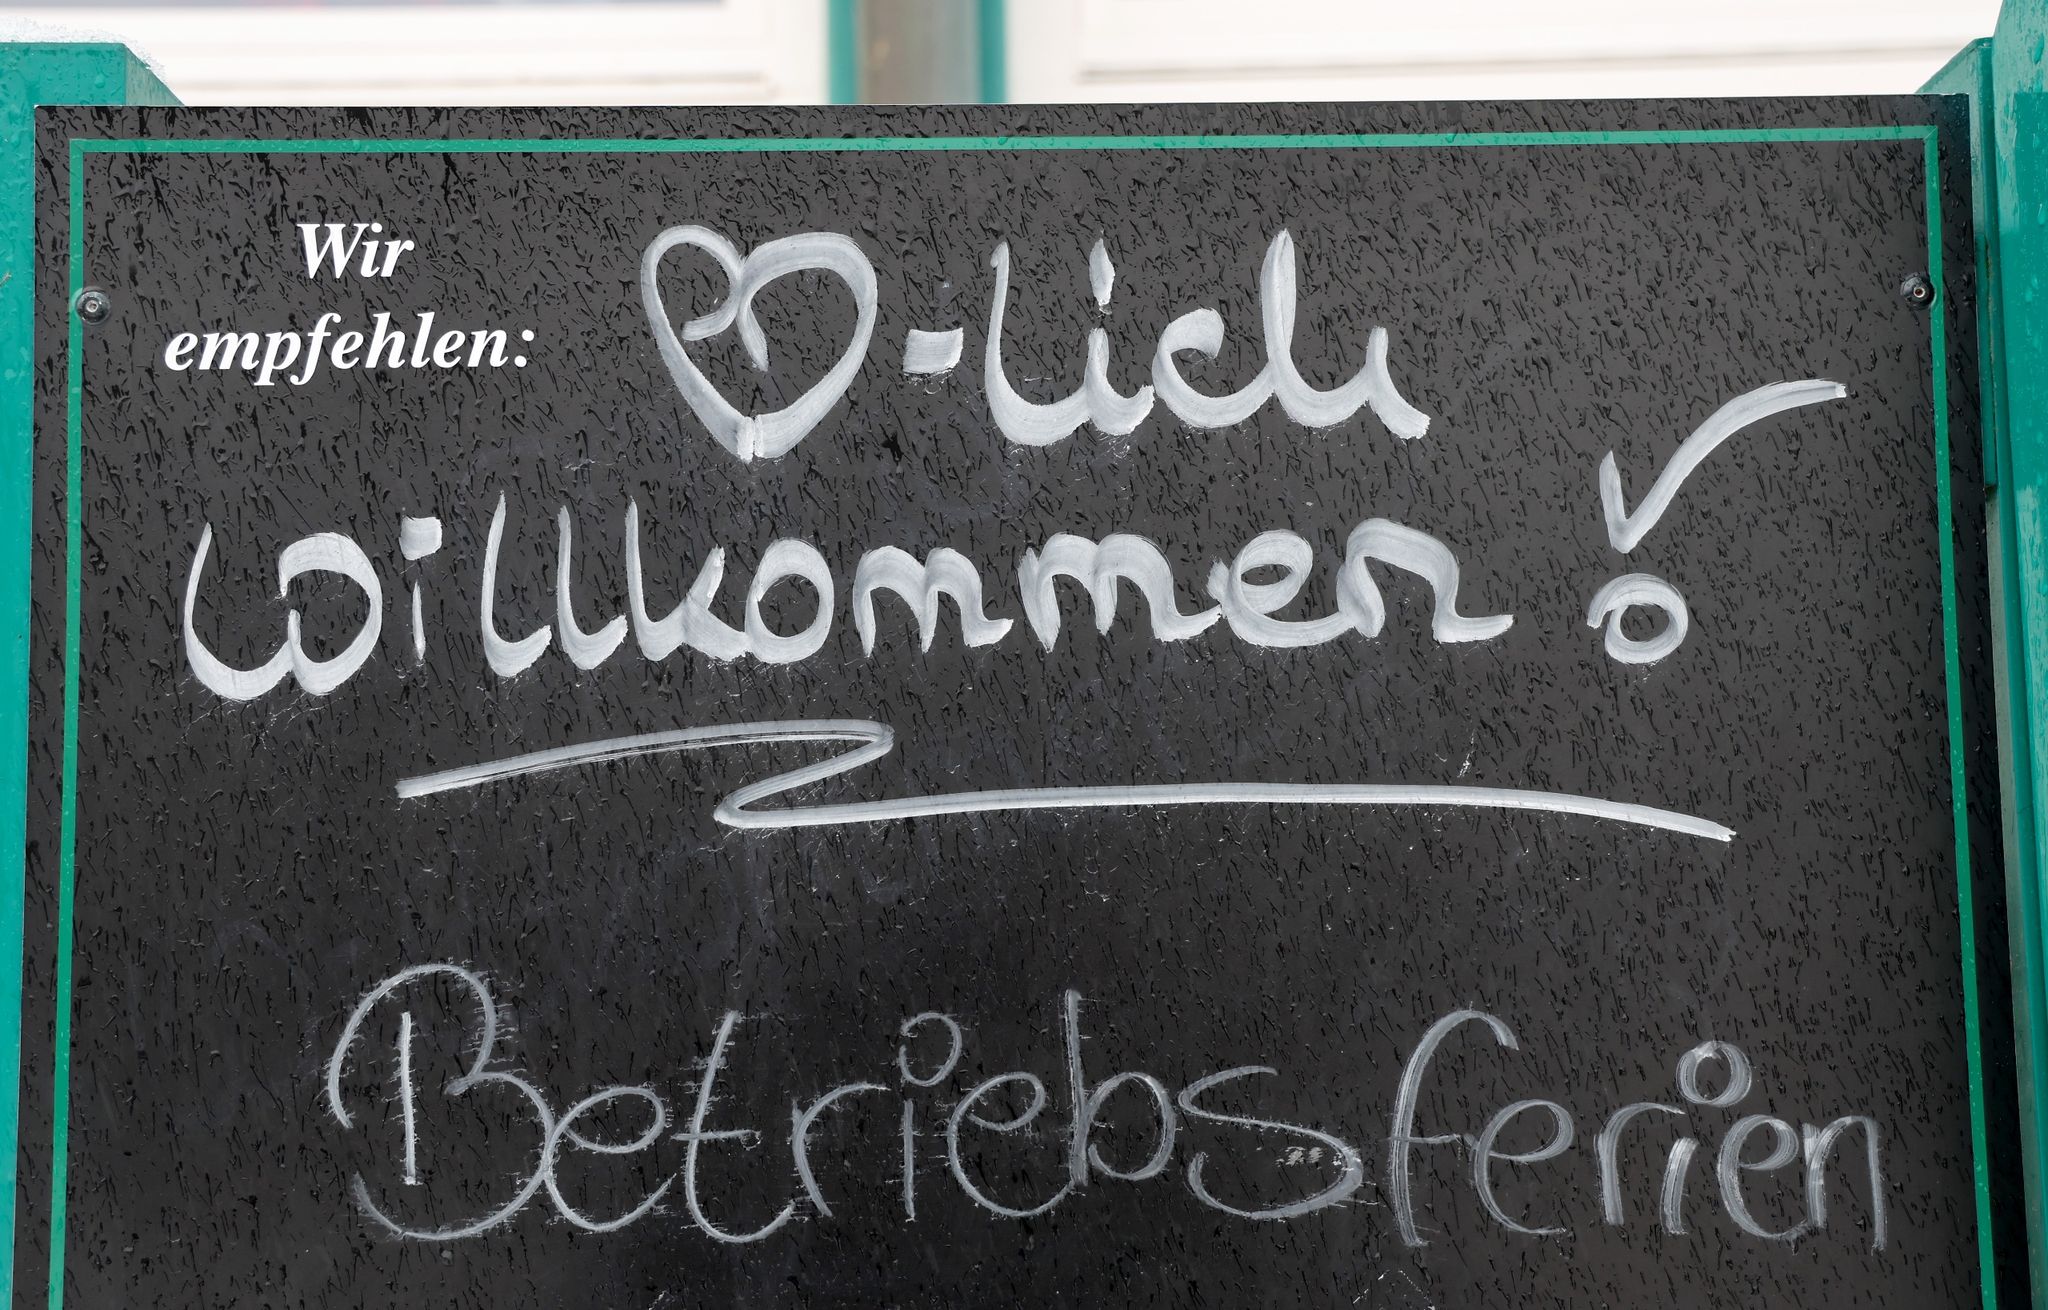 Wir
empfehlen:
♡-lich
willkommen!
Betriebsferien